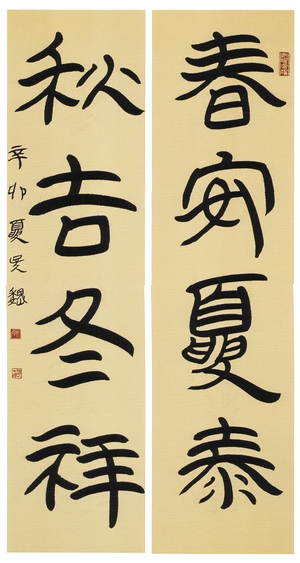 春安夏泰
秋吉冬祥
辛卯夏吴